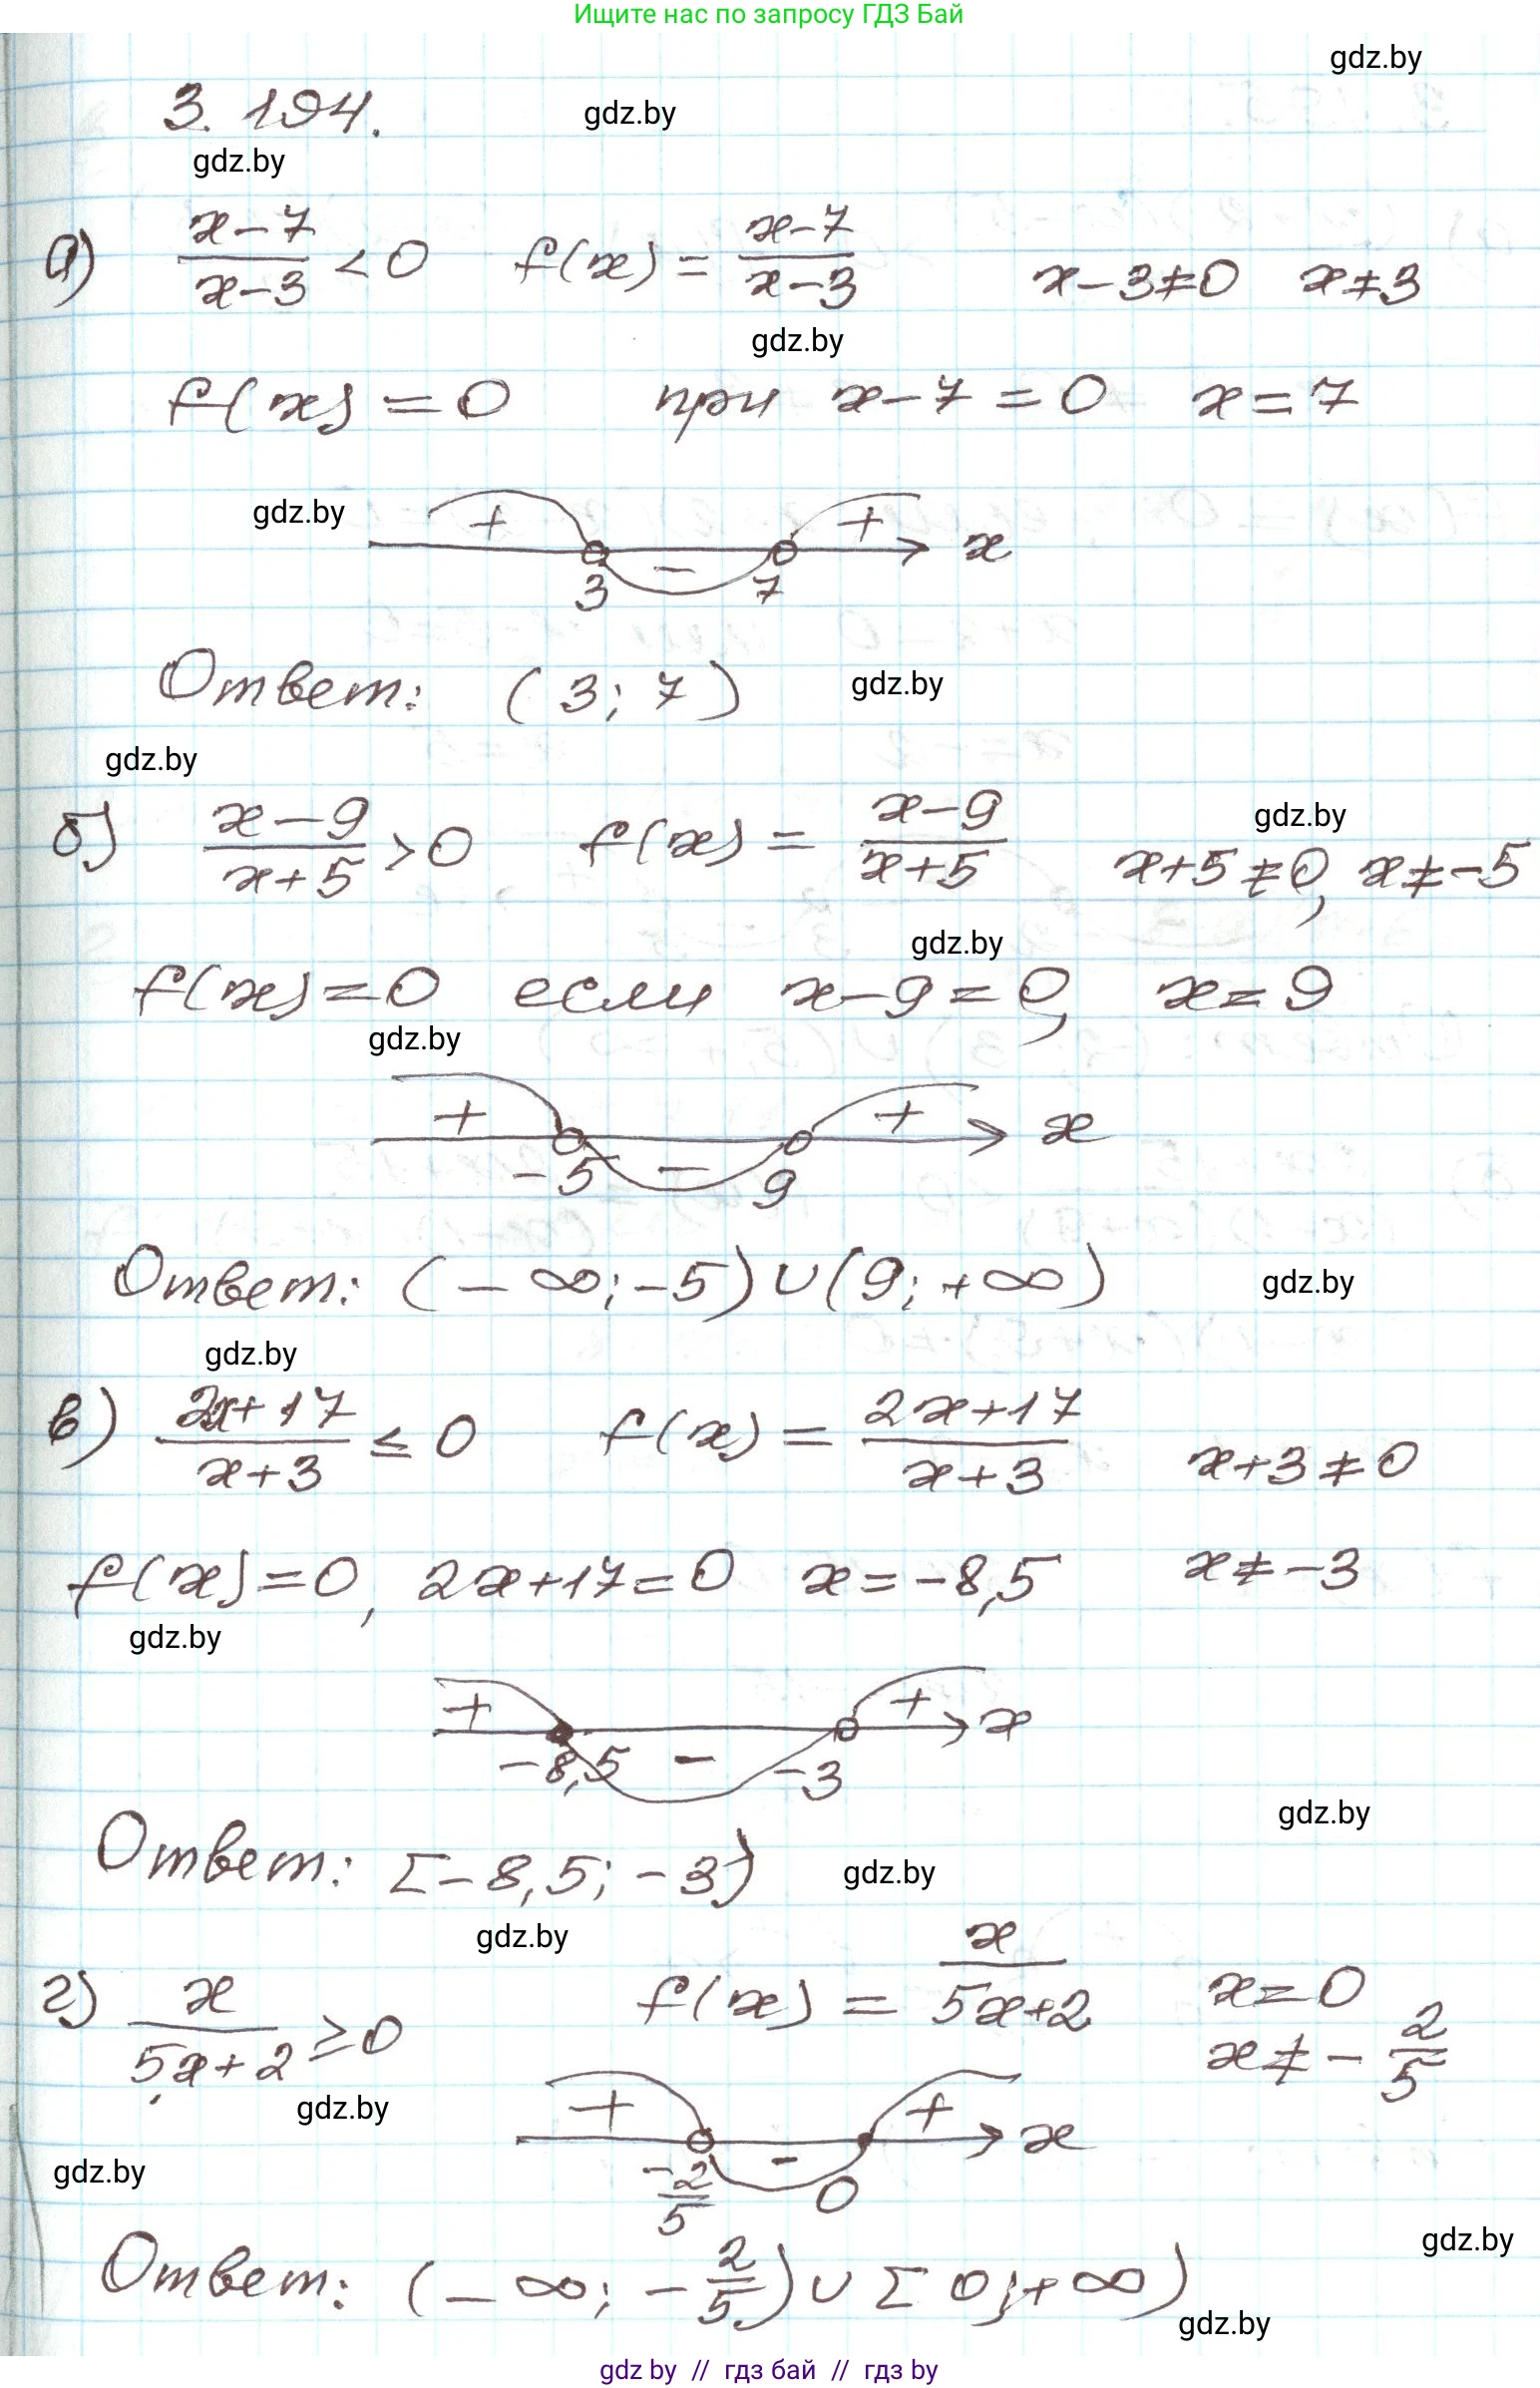 Ищите нас по запросу ГДЗ Бай
gdz.by
3. 194.
gdz.by
gdz.by
а) (x-7)/(x-3) < 0 f(x) = (x-7)/(x-3) x-3≠0 x≠3
gdz.by
f(x) = 0 при x-7=0 x=7
gdz.by
+ - + x
3 7
Ответ: (3; 7)
gdz.by
gdz.by
б) (x-9)/(x+5) > 0 f(x) = (x-9)/(x+5) x+5≠0, x≠-5
gdz.by
gdz.by
f(x)=0 если x-9=0, x=9
gdz.by
+ - + x
-5 9
Ответ: (-∞; -5) ∪ (9; +∞)
gdz.by
gdz.by
в) (2x+17)/(x+3) ≤ 0 f(x) = (2x+17)/(x+3) x+3≠0
f(x)=0, 2x+17=0 x=-8,5 x≠-3
gdz.by
+ - + x
-8,5 -3
gdz.by
Ответ: [-8,5; -3)
gdz.by
gdz.by
г) x/(5x+2) ≥ 0 f(x) = x/(5x+2) x=0
x≠-2/5
gdz.by
+ - + x
-2/5 0
gdz.by
gdz.by
Ответ: (-∞; -2/5) ∪ [0; +∞)
gdz.by
gdz by // гдз бай // гдз by